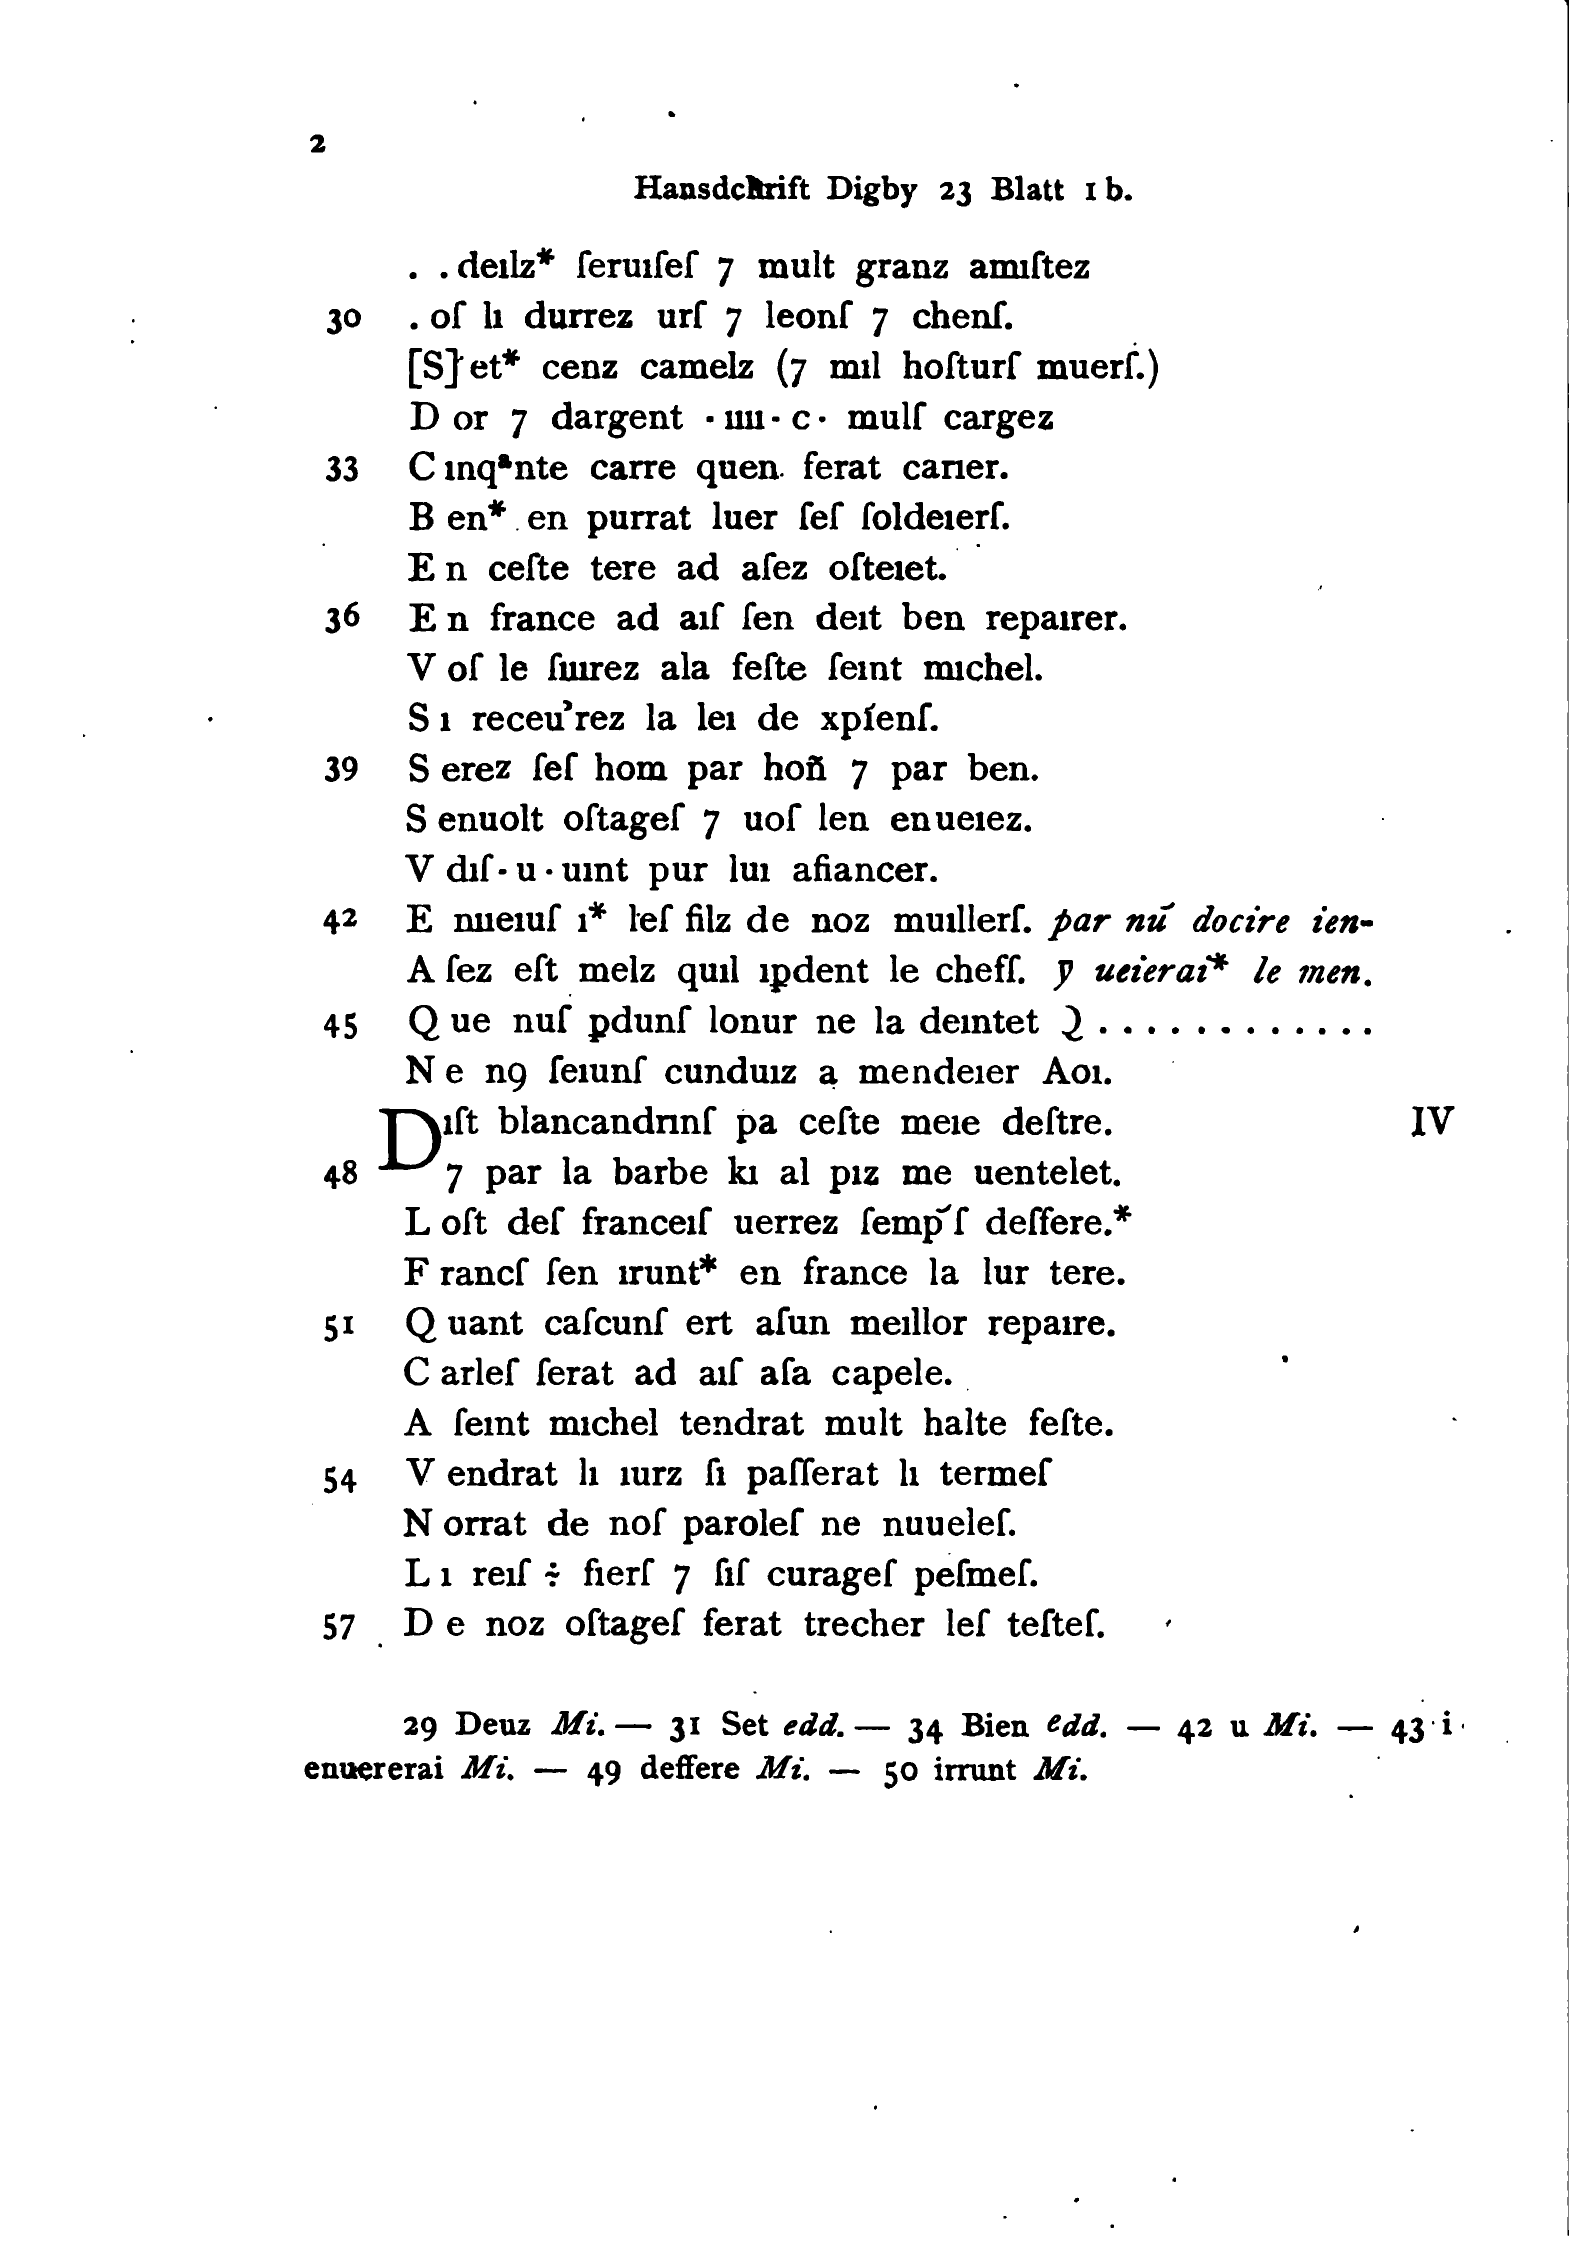 2
Hansdchrift Digby 23 Blatt 1 b.
. . deılz* ſeruıſeſ 7 mult granz amıſtez
30 . oſ lı durrez urſ 7 leonſ 7 chenſ.
[S] et* cenz camelz (7 mıl hoſturſ muerſ.)
D or 7 dargent · ıııı · c · mulſ cargez
33 C ınqᵃnte carre quen ferat carıer.
B en* en purrat luer ſeſ ſoldeıerſ.
E n ceſte tere ad aſez oſteıet.
36 E n france ad aıſ ſen deıt ben repaırer.
V oſ le ſıurez ala feſte ſeınt mıchel.
S ı receu’rez la leı de xpíenſ.
39 S erez ſeſ hom par hoñ 7 par ben.
S enuolt oſtageſ 7 uoſ len enueıez.
V dıſ · u · uınt pur luı afiancer.
42 E nueıuſ ı* leſ filz de noz muıllerſ. par nu᷄ docire ien-
A ſez eſt melz quıl ıꝑdent le cheſſ. ꝩ ueierai* le men.
45 Q ue nuſ ꝑdunſ lonur ne la deıntet Q . . . . . . . . . . . .
N e nꝯ ſeıunſ cunduız a mendeıer Aoı.
Dıſt blancandrınſ pa ceſte meıe deſtre. IV
48 7 par la barbe kı al pız me uentelet.
L oſt deſ franceıſ uerrez ſemp᷄ſ deſfere.*
F rancſ ſen ırunt* en france la lur tere.
51 Q uant caſcunſ ert aſun meıllor repaıre.
C arleſ ſerat ad aıſ aſa capele.
A ſeınt mıchel tendrat mult halte feſte.
54 V endrat lı ıurz ſı paſſerat lı termeſ
N orrat de noſ paroleſ ne nuueleſ.
L ı reıſ ÷ fierſ 7 ſıſ curageſ peſmeſ.
57 D e noz oſtageſ ferat trecher leſ teſteſ.
29 Deuz Mi. — 31 Set edd. — 34 Bien edd. — 42 u Mi. — 43 i
enuererai Mi. — 49 deffere Mi. — 50 irrunt Mi.